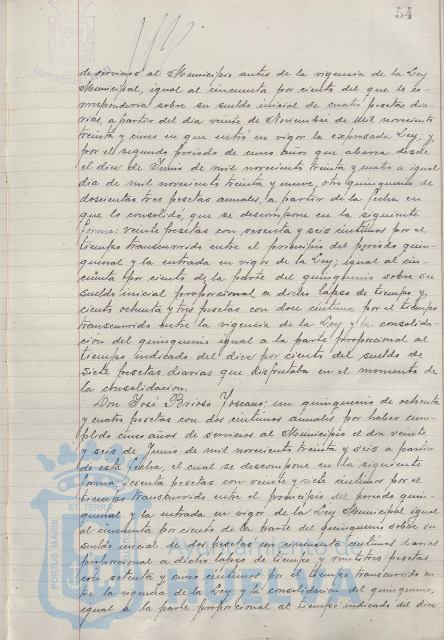 54
de servicios al Municipio antes de la vigencia de la Ley
Municipal, igual al cincuenta por ciento del que le co-
rrespondería sobre su sueldo inicial de cuatro pesetas dia-
rias, a partir del día veinte de Noviembre de mil novecientos
treinta y cinco en que entró en vigor la expresada Ley; y
por el segundo periodo de cinco años que abarca desde
el día de Junio de mil novecientos treinta y cuatro a igual
día de mil novecientos treinta y nueve, otro quinquenio de
doscientas tres pesetas anuales, a partir de la fecha en
que lo consolidó, que se descompone en la siguiente
forma: veinte pesetas con sesenta y seis céntimos por el
tiempo transcurrido entre el principio del periodo quin-
quenal y la entrada en vigor de la Ley, igual al cin-
cuenta por ciento de la parte del quinquenio sobre su
sueldo inicial proporcional a dicho lapso de tiempo y,
ciento ochenta y tres pesetas con doce céntimos por el tiempo
transcurrido entre la vigencia de la Ley y la consolida-
ción del quinquenio igual a la parte proporcional al
tiempo indicado del diez por ciento del sueldo de
siete pesetas diarias que disfrutaba en el momento de
la consolidación.
Don José Brioso un quinquenio de ochenta
y cuatro pesetas con dos céntimos anuales por haber cum-
plido cinco años de servicios al Municipio el día veinte
y seis de Junio de mil novecientos treinta y seis a partir
de esta fecha, el cual se descompone en la siguiente
forma: sesenta pesetas con veinte y siete céntimos por el
tiempo transcurrido entre el principio del periodo quin-
quenal y la entrada en vigor de la Ley Municipal igual
al cincuenta por ciento de la parte del quinquenio sobre su
sueldo inicial de dos pesetas con cincuenta céntimos diarias
proporcional a dicho lapso de tiempo y veintitres pesetas
con setenta y cinco céntimos por el tiempo transcurrido en-
tre la vigencia de la Ley y la consolidación del quinquenio,
igual a la parte proporcional al tiempo indicado del diez
PORTUS MARIS
ET TERRAE
Ayuntamiento de
HUELVA